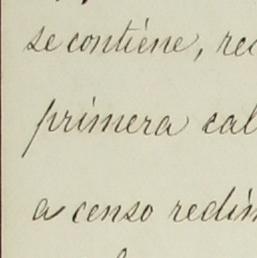 se contiéne, rec
primera cal
a censo redim